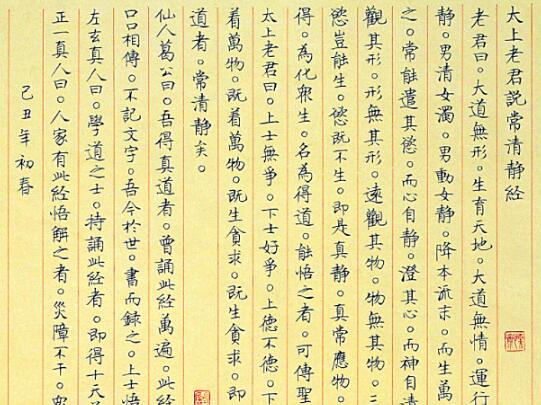 太上老君說常清静經
老君曰。大道無形。生育天地。大道無情。運行
静。男清女濁。男動女静。降本流末。而生萬
之。常能遣其慾。而心自静。澄其心。而神自清
觀其形。形無其形。遠觀其物。物無其物。
慾豈能生。慾既不生。即是真静。真常應物。
得。為化衆生。名為得道。能悟之者。可傳聖
太上老君曰。上士無爭。下士好爭。上德不德。下
着萬物。既着萬物。既生貪求。既生貪求。即
道者。常清静矣。
仙人葛公曰。吾得真道者。曾誦此經萬遍。此經
口口相傳。不記文字。吾今於世。書而錄之。上士悟
左玄真人曰。學道之士。持誦此經者。即得十天
正一真人曰。人家有此經悟解之者。災障不干。
己丑年初春